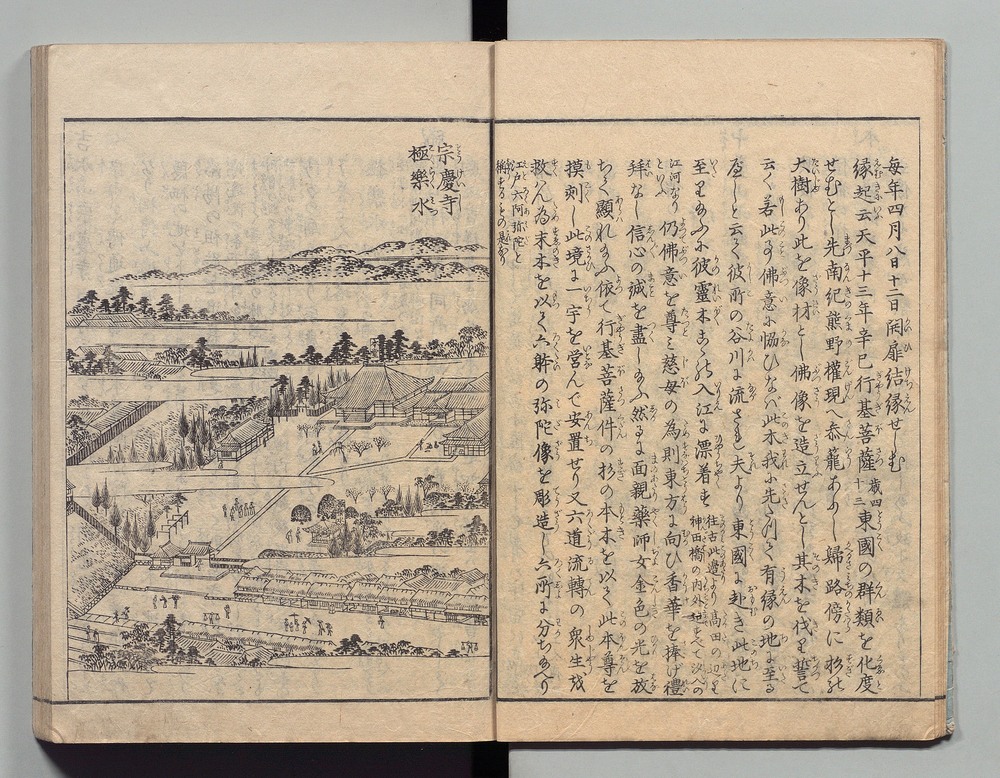 毎年四月八日十二日開扉結縁せしむ
縁起云天平十三年辛巳行基菩薩歳四十三東國の群類を化度
せむとし先南紀熊野権現へ参籠あり し婦路傍に杉の
大樹あり此を像材とし佛像を造立せんとし其木を伐り誓て
云く若此の佛意に協ひなバ此木我に先たつて有縁の地に至る
べしと云て彼所の谷川に流さる夫より東國に赴き此地に
至り給ふに彼靈木こゝの入江に漂着す往古此邊より高田の辺
神田橋の内外迄すべて
江河なり仍佛意を尊ミ慈母の為則東方に向ひ香華を捧げ禮
拜なし信心の誠を盡し給ふ然るに面親薬師女金色の光を放
ちて顕れ給ふ依て行基菩薩件の杉の本木を以て此本尊を
摸刻し此境に一宇を営んで安置せり又六道流轉の衆生を
救ん為末木を以て六躰の弥陀像を彫造し六所に分ちあり
江戸六阿弥陀と
称するもの是なり
宗慶寺
極樂水